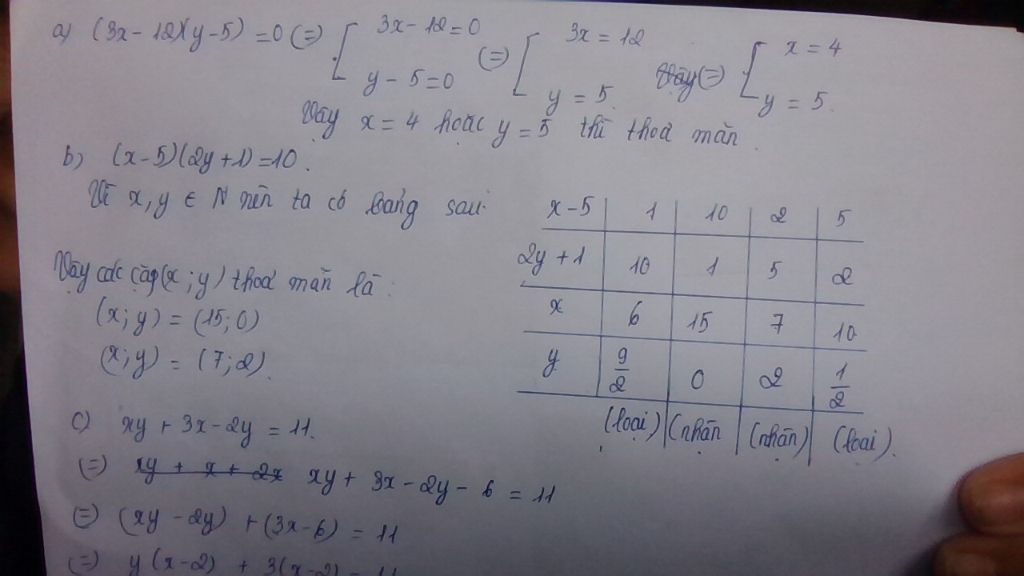 a) (3x-12)(y-5) = 0 (=) [ 3x-12=0 (=) [ 3x = 12 (=) [ x = 4
y - 5 = 0 y = 5. y = 5.
Vậy x = 4 hoặc y = 5 thì thoả mãn.
b) (x-5)(2y+1)=10.
Vì x, y ∈ N nên ta có bảng sau:
x-5 | 1 | 10 | 2 | 5
2y+1 | 10 | 1 | 5 | 2
x | 6 | 15 | 7 | 10
y | 9/2 | 0 | 2 | 1/2
(loại) | (nhận | (nhận) | (loại).
Vậy các cặp (x; y) thoả mãn là:
(x; y) = (15; 0)
(x; y) = (7; 2).
c) xy + 3x - 2y = 11.
(=) xy + x + 2x xy + 3x - 2y - 6 = 11
(=) (xy - 2y) + (3x-6) = 11
(=) y(x-2) + 3(x-2) = 11